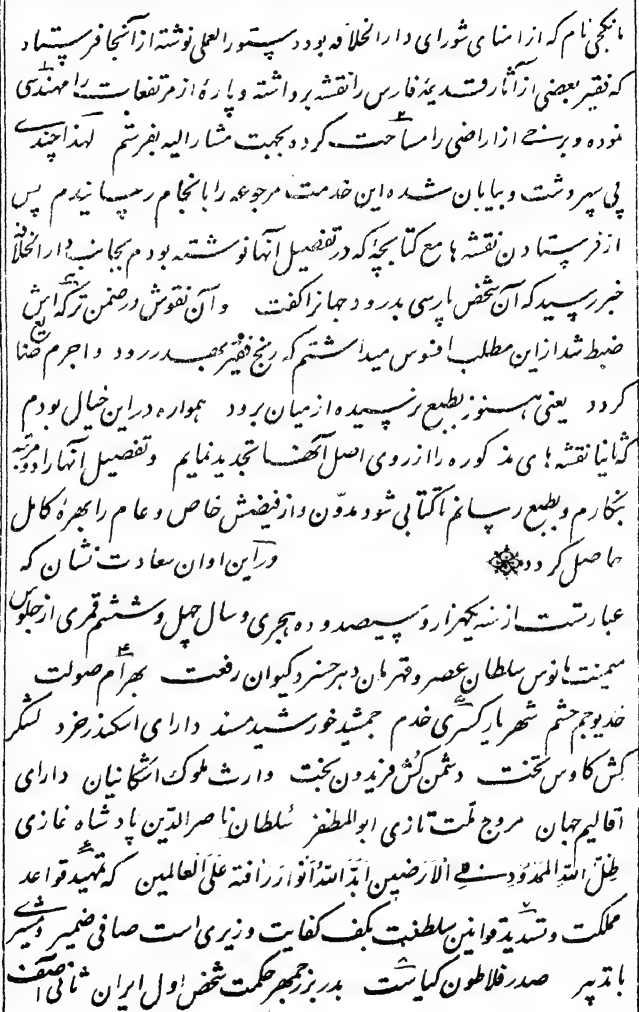 مانکجی نام که از امنای شورای دارالخلافه بود دستورالعملی نوشته از آنجا فرستاد
که فقیر بعضی از آثار قدیمهٔ فارس را نقشه برداشته و پارهٔ از مرتفعات را مهندسی
نموده و برخی از اراضی را مساحت کرده بجهت مشارالیه بفرستم لهذا چندی
پی سپر دشت و بیابان شده این خدمت مرجوعه را بانجام رسانیدم پس
از فرستادن نقشه ها مع کتابچهٔ که در تفصیل آنها نوشته بودم بجانب دارالخلافه
خبر رسید که آن شخص پارسی بدرود جهان را گفت و آن نقوش در ضمن ترکه اش
ضبط شد از این مطلب افسوس میداشتم که رنج فقیر بهدر رود و اجرم ضایع
گردد یعنی هنوز بطبع نرسیده از میان برود همواره در این خیال بودم
که ثانیا نقشه های مذکوره را از روی اصل آنها تجدید نمایم و تفصیل آنها را دو مرتبه
بنگارم و بطبع رسانم تا کتابی شود مدوّن و از فیضش خاص و عام را بهرهٔ کامل
حاصل گردد و در این اوان سعادت نشان که
عبارتست از سنه یکهزار و سیصد و ده هجری و سال چهل و ششم قمری از جلوس
میمنت مانوس سلطان عصر و قهرمان دهر خسرو کیوان رفعت بهرام صولت
خدیو جم حشم شهریار کسری خدم جمشید خورشید مسند دارای اسکندر خرد لشکر
کش کاوس تخت دشمن کش فریدون بخت وارث ملوک اشکانیان دارای
اقالیم جهان مروج ملت تازی ابوالمظفر سلطان ناصرالدین پادشاه غازی
ظل الله الممدود فی الارضین ابد الله انوار رافته علی العالمین که تمهید قواعد
مملکت و تشدید قوانین سلطنت بکف کفایت وزیری است صافی ضمیر و مشیری
با تدبیر صدر فلاطون کیاست بدر بزرجمهر حکمت شخص اول ایران ثانی آصف